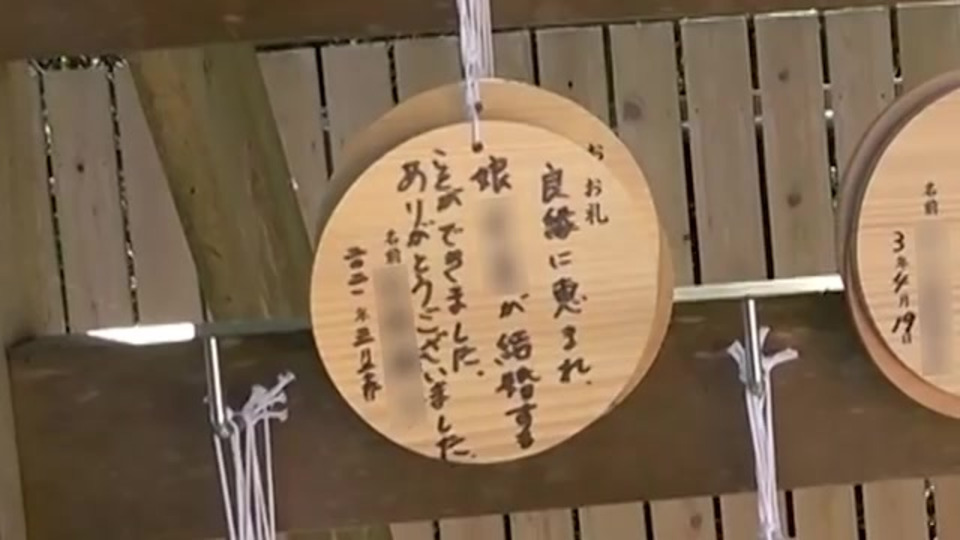 お礼
良縁に恵まれ、
娘
が結婚する
ことができました。
ありがとうございました。
名前
二〇二一年三月
お
名前
3年4月19日